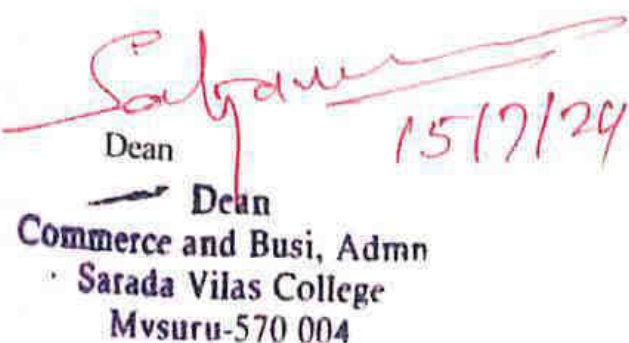 15/7/24
Dean
Dean
Commerce and Busi, Admn
Sarada Vilas College
Mysuru-570 004